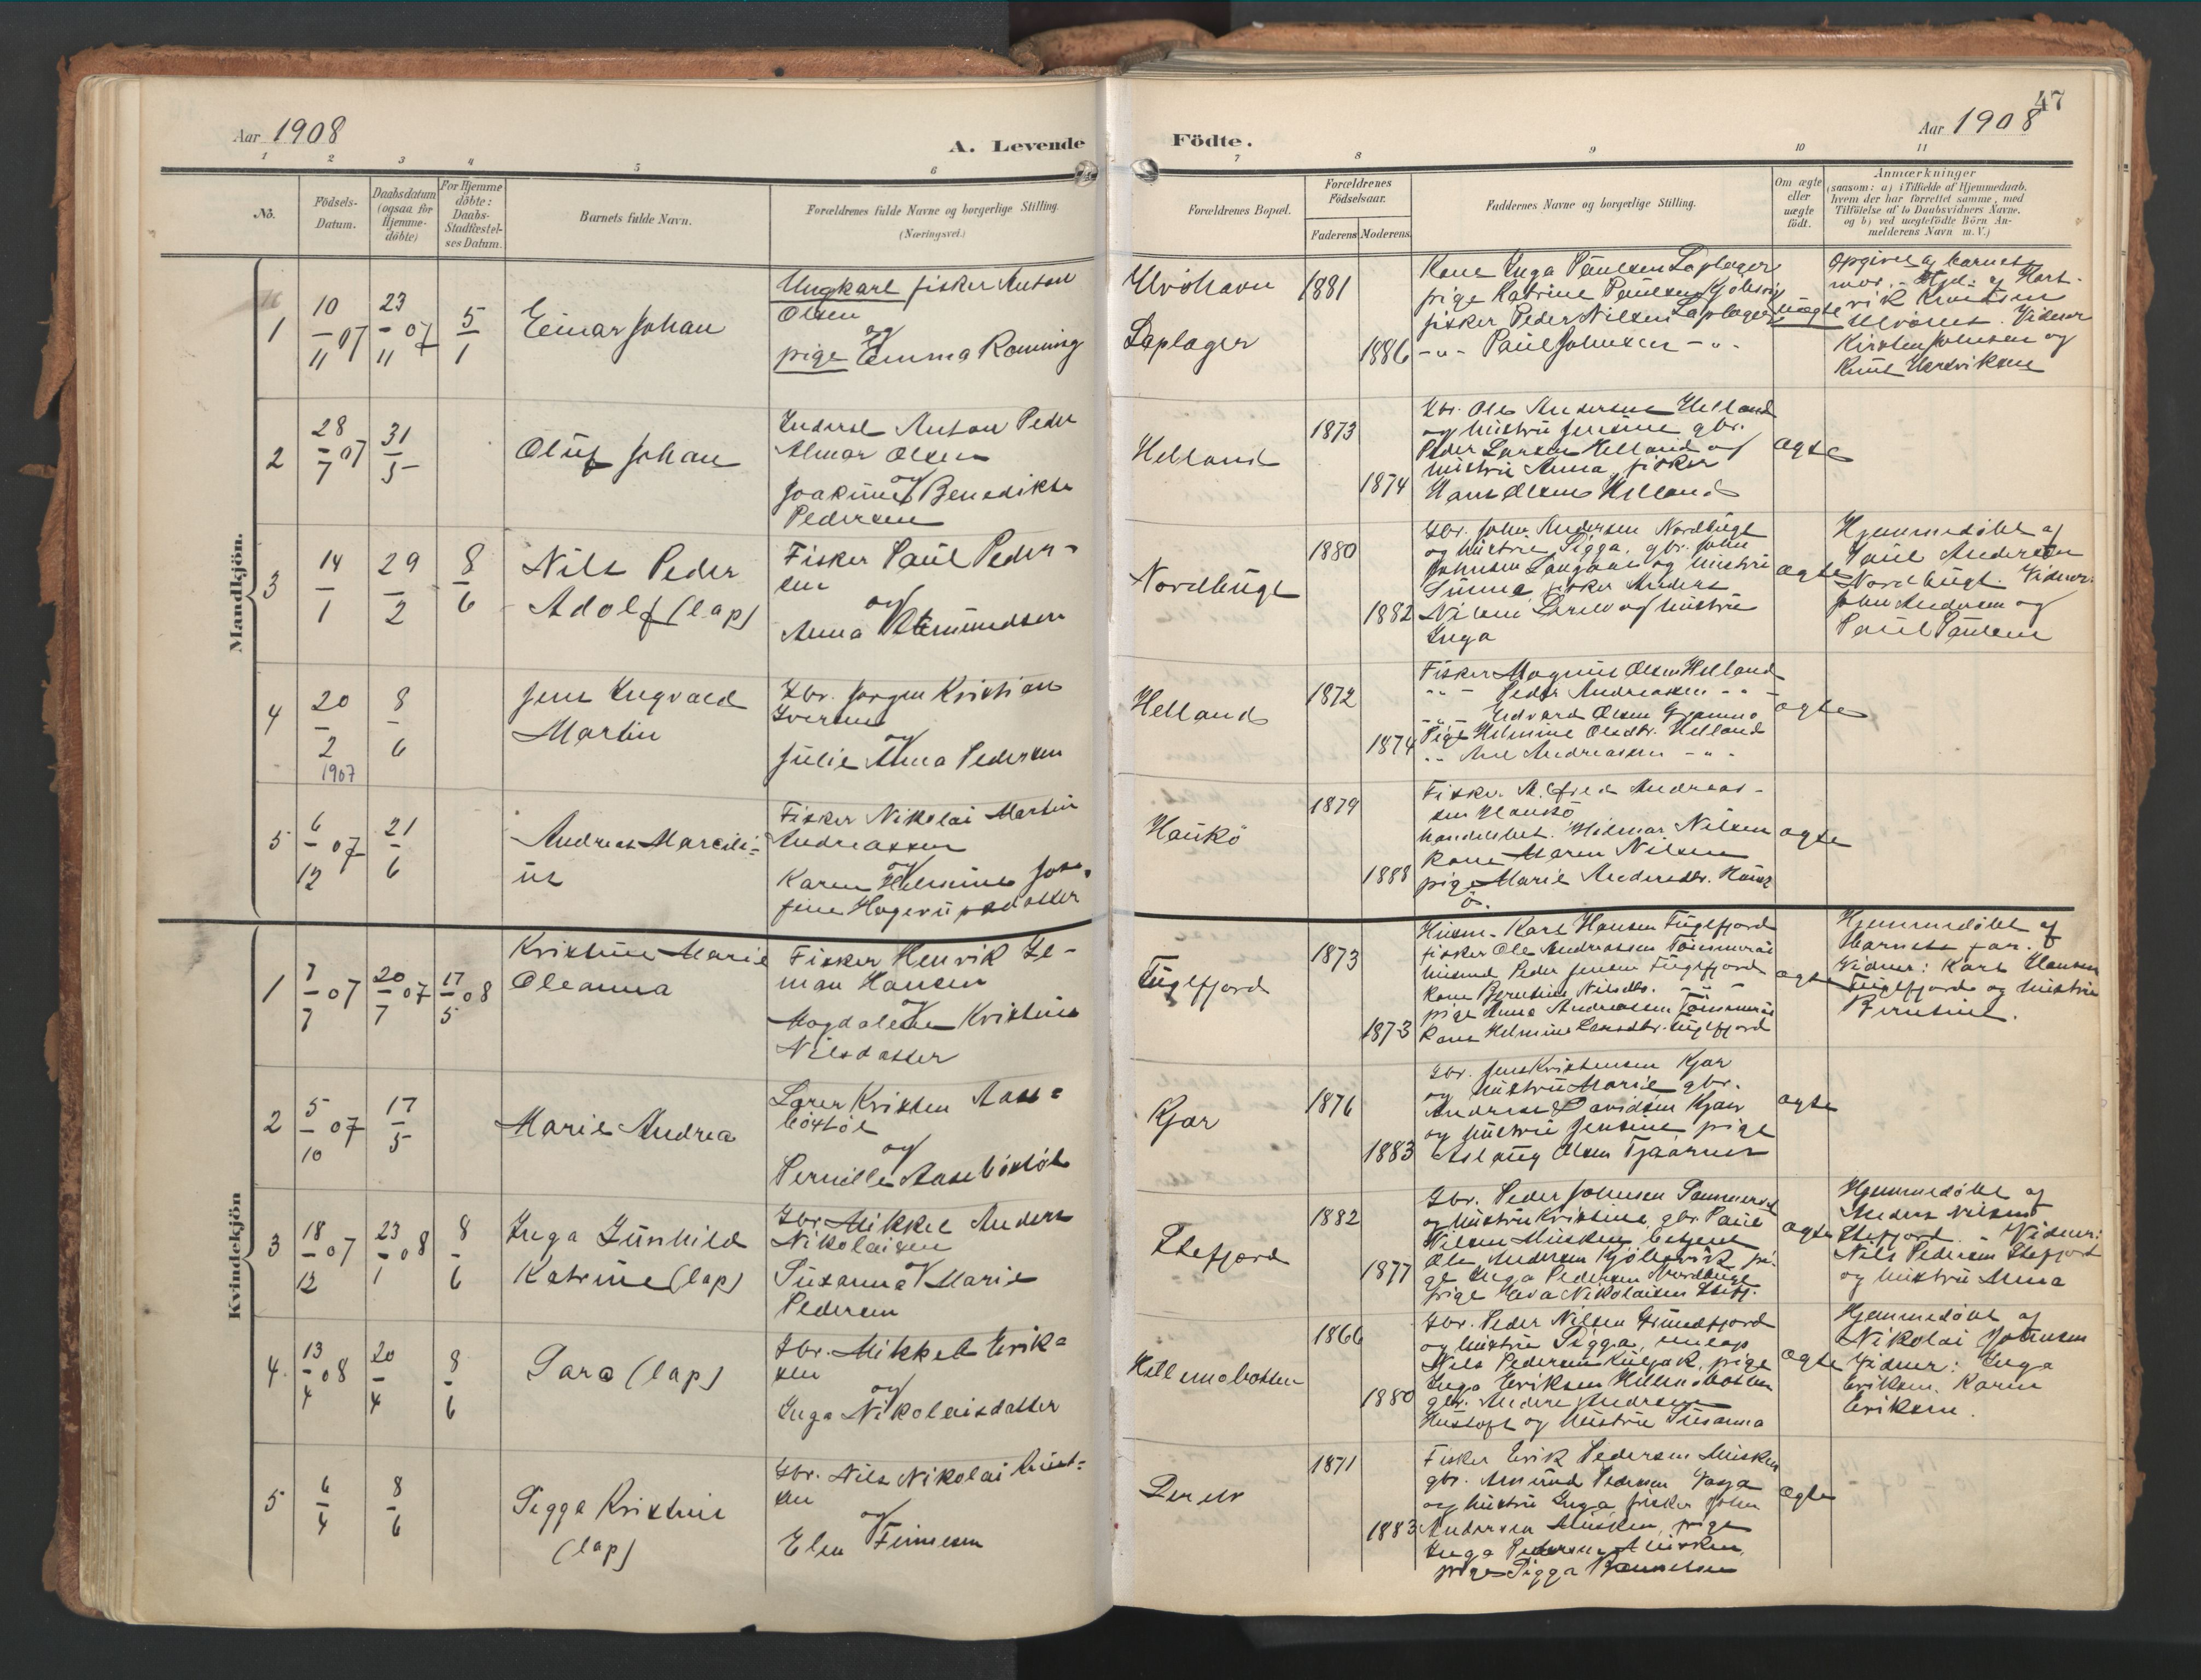 Aar 1908
A. Levende
1 2 3 4 5 6
No.
Födsels-
Datum.
Daabsdatum
(ogsaa for
Hjemme-
döbte)
For Hjemme
döbte:
Daabs-
Stadfæstel-
ses Datum.
Barnets fulde Navn.
Forældrenes fulde Navne og borgerlige Stilling.
(Næringsvei.)
Mandkjön.
1
10/11 07
23/11 07
5/1
Einar Johan
Ungkarl fisker Anton
Olsen
og
pige Emma Romning
2
28/7 07
31/5
Oluf Johan
Inderst Anton Peder
Almar Olsen
og
Joakime Benedikte
Pedersen
3
14/1
29/2
8/6
Nils Peder
Adolf (lap)
Fisker Paul Peder-
sen
og
Anna Amundsen
4
20/2
1907
8/6
Jens Ingvald
Martin
Gbr. Jørgen Kristian
Iversen
og
Julie Anna Pedersen
5
6/12 07
21/6
Andreas Marcili-
us
Fisker Nikolai Martin
Andreassen
og
Karen Helmine Jose-
fine Hagerupsdatter
Kvindekjön
1
7/7 07
20/7 07
17/5 08
Kristine Marie
Oleanna
Fisker Henrik El-
man Hansen
og
Magdalene Kristine
Nilsdatter
2
5/10 07
17/5
Marie Andrea
Lærer Kristen Aase-
böstöl
og
Pernille Aaseböstöl
3
18/12 07
23/1 08
8/6
Inga Gunhild
Katrine (lap)
Gbr. Mikkel Anders
Nikolaisen
og
Susanna Marie
Pedersen
4.
13/4 08
20/4
8/6
Sara (lap)
Gbr. Mikkel Erik-
sen
og
Inga Nikolaisdatter
5
6/4
8/6
Sigga Kristine
(lap)
Gbr. Nils Nikolai
sen
og
Elen Finnesen
47
Aar 1908
Födte.
7 8 9 10 11
Forældrenes Bopæl.
Forældrenes
Födselsaar.
Faderens Moderens.
Faddernes Navne og borgerlige Stilling.
Om ægte
eller
uægte
födt.
Anmærkninger
(saasom: a) i Tilfælde af Hjemmedaab,
hvem der har forrettet samme, med
Tilföielse af to Daabsvidners Navne,
og b) ved uægtefödte Börn An-
melderens Navn m. V.)
Ulvöhavn
Laplager
1881
1886
Kone Inga Paulsen Laplager
pige Katrine Paulsen Kjobsvig
fisker Peder Nilsen Laplager
-"- Paul Johnsen -"-
uægte
Opgivet af barnets
mor. Hjd. af Hart-
vik Knudsen
Ulvönes. Vidner
Kirsten Johnsen og
Knut Hendriksen
Helland
1873
1874
Gbr. Ole Andersen Helland
og hustru Jensine gbr.
Peder Larsen Helland og
hustru Anna, fisker
Hans Olsen Helland
ægte
Nordbugt
1880
1882
Gbr. John Andersen Nordbugt
og hustru Sigga, gbr. John
Johnsen og hustru
fisker Anders
Nilsen og hustru
Inga
ægte
Hjemmedøbt af
Paul Andersen
Nordbugt. Vidner:
John Andersen og
Paul Paulsen
Helland
1872
1874
Fisker Magnus Olsen Helland
-"- Peder Andreassen -"-
-"- Edvard Olsen
Pige Helmine Olsdtr. Helland
-"- Andreassen -"-
ægte
Haukö
1879
1888
Fisker Alfred Andreas-
sen Haukö
handelsbet. Hilmar Nilsen
Kone Maren Nilsen
pige Marie Andersdtr. Hauk-
ö.
ægte
Fuglfjord
1873
1873
Husm. Karl Hansen Fuglfjord
fisker Ole Andreassen
husmd. Peder Jensen Fuglfjord
Kone Berntine Nilsdtr. -"-
pige Anna Andreassen
Kone Helmine Larsdtr. Fuglfjord
ægte
Hjemmedøbt af
Barnets far.
Vidner: Karl Hansen
Fuglfjord og hustru
Berntine.
Kjær
1876
1883
Gbr. Jens Kristensen Kjær
og hustru Marie gbr.
Andreas Davidsen Kjær
og hustru Jensine pige
Aslaug Olsen
ægte
Stefjord
1882
1877
Gbr. Peder Johnsen
og hustru Kristine, gbr. Paul
Nilsen Musken, betjent
Ole Andersen Kjöbsvik, pi-
ge Inga Pedersen Nordbugt
pige Eva Nikolaisen Stefj.
ægte
Hjemmedøbt af
Anders Nilsen
Stefjord. Vidner:
Nils Pedersen Stefjord
og hustru Anna
Hellemobotten
1866
1880
Gbr. Peder Nilsen Grundfjord
og hustru Sigga,
Nils Pedersen, pige
Inga Eriksen Hellmobotten
gbr. Anders Andersen
og hustru Susanna
ægte
Hjemmedøbt af
Nikolai Johnsen
Vidner: Inga
Eriksen, Karen
Eriksen.
1871
1883
Fisker Erik Pedersen Musken
gbr. Amund Pedersen
og hustru Inga, fisker John
Andersen Musken, pige
Inga Pedersen Musken,
pige Sigga
ægte